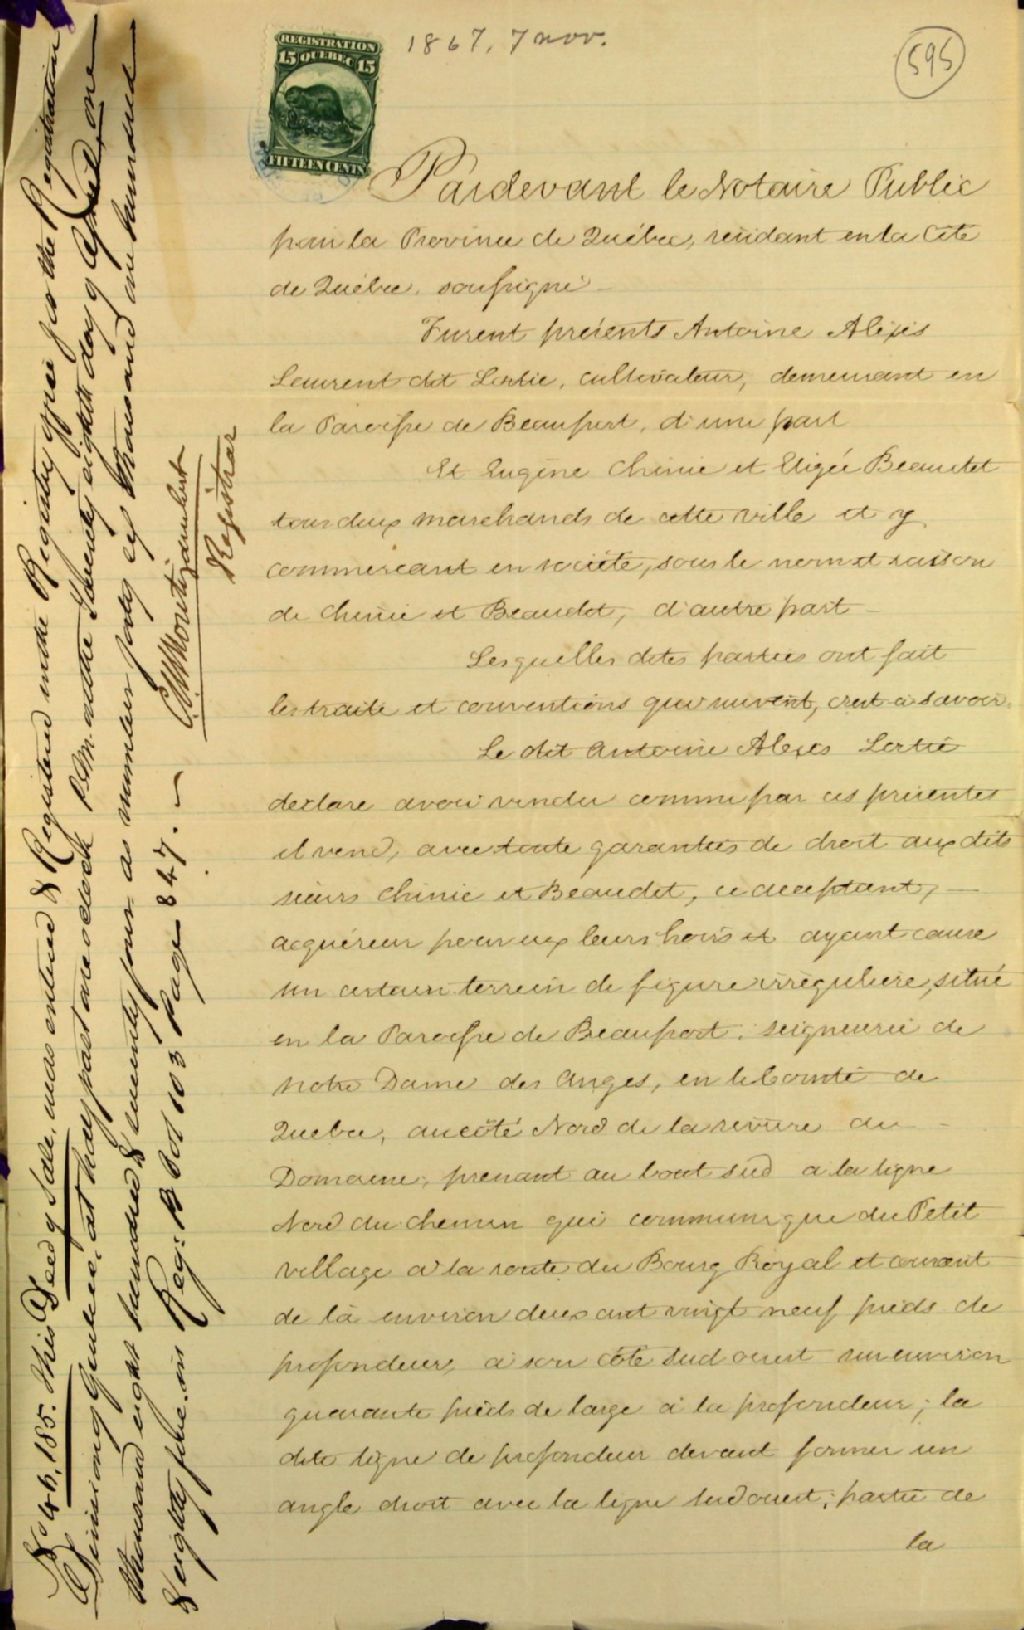 1867, 7 nov.
595
REGISTRATION
15 QUEBEC 15
FIFTEEN CENTS
Pardevant le Notaire Public
pour la Province de Québec, résidant en la Cité
de Québec, soussigné
Furent présents Antoine Alexis
Laurent dit Lortie, cultivateur, demeurant en
la Paroisse de Beauport, d'une part
Et Eugène Chinic et Elizée Beaudet
tous deux marchands de cette ville et y
commercant en société, sous le nom et raison
de Chinic et Beaudet, d'autre part
Lesquelles dites parties ont fait
les traité et conventions qui suivent, c'est à savoir.
Le dit Antoine Alexis Lortie
declare avoir vendu comme par ces présentes
il vend, avec toute garanties de droit aux dits
sieurs Chinic et Beaudet, ce acceptant,
acquéreur pour eux leurs hoirs et ayant cause
un certain terrein de figure irrégulière, situé
en la Paroisse de Beauport, seigneurie de
Notre Dame des Anges, en le Comté de
Quebec, au côté Nord de la rivière du
Domaine, prenant au bout sud a la ligne
Nord du chemin qui communique du Petit
village à la route du Bourg Royal et courant
de là environ deux cent vingt neuf pieds de
profondeur, à son côté sud ouest sur environ
quarante pieds de large à la profondeur; la
dite ligne de profondeur devant former un
angle droit avec la ligne sud ouest; partie de
la
No 46,185. This Deed of Sale, was entered & Registered in the Registry office for the Registration
Division of Quebec, at half past one o'clock P.M. on the twenty eighth day of April one
thousand eight hundred & seventy four as number forty six thousand one hundred
& eighty five. in Reg: B Vol 103 page 847.
Registrar